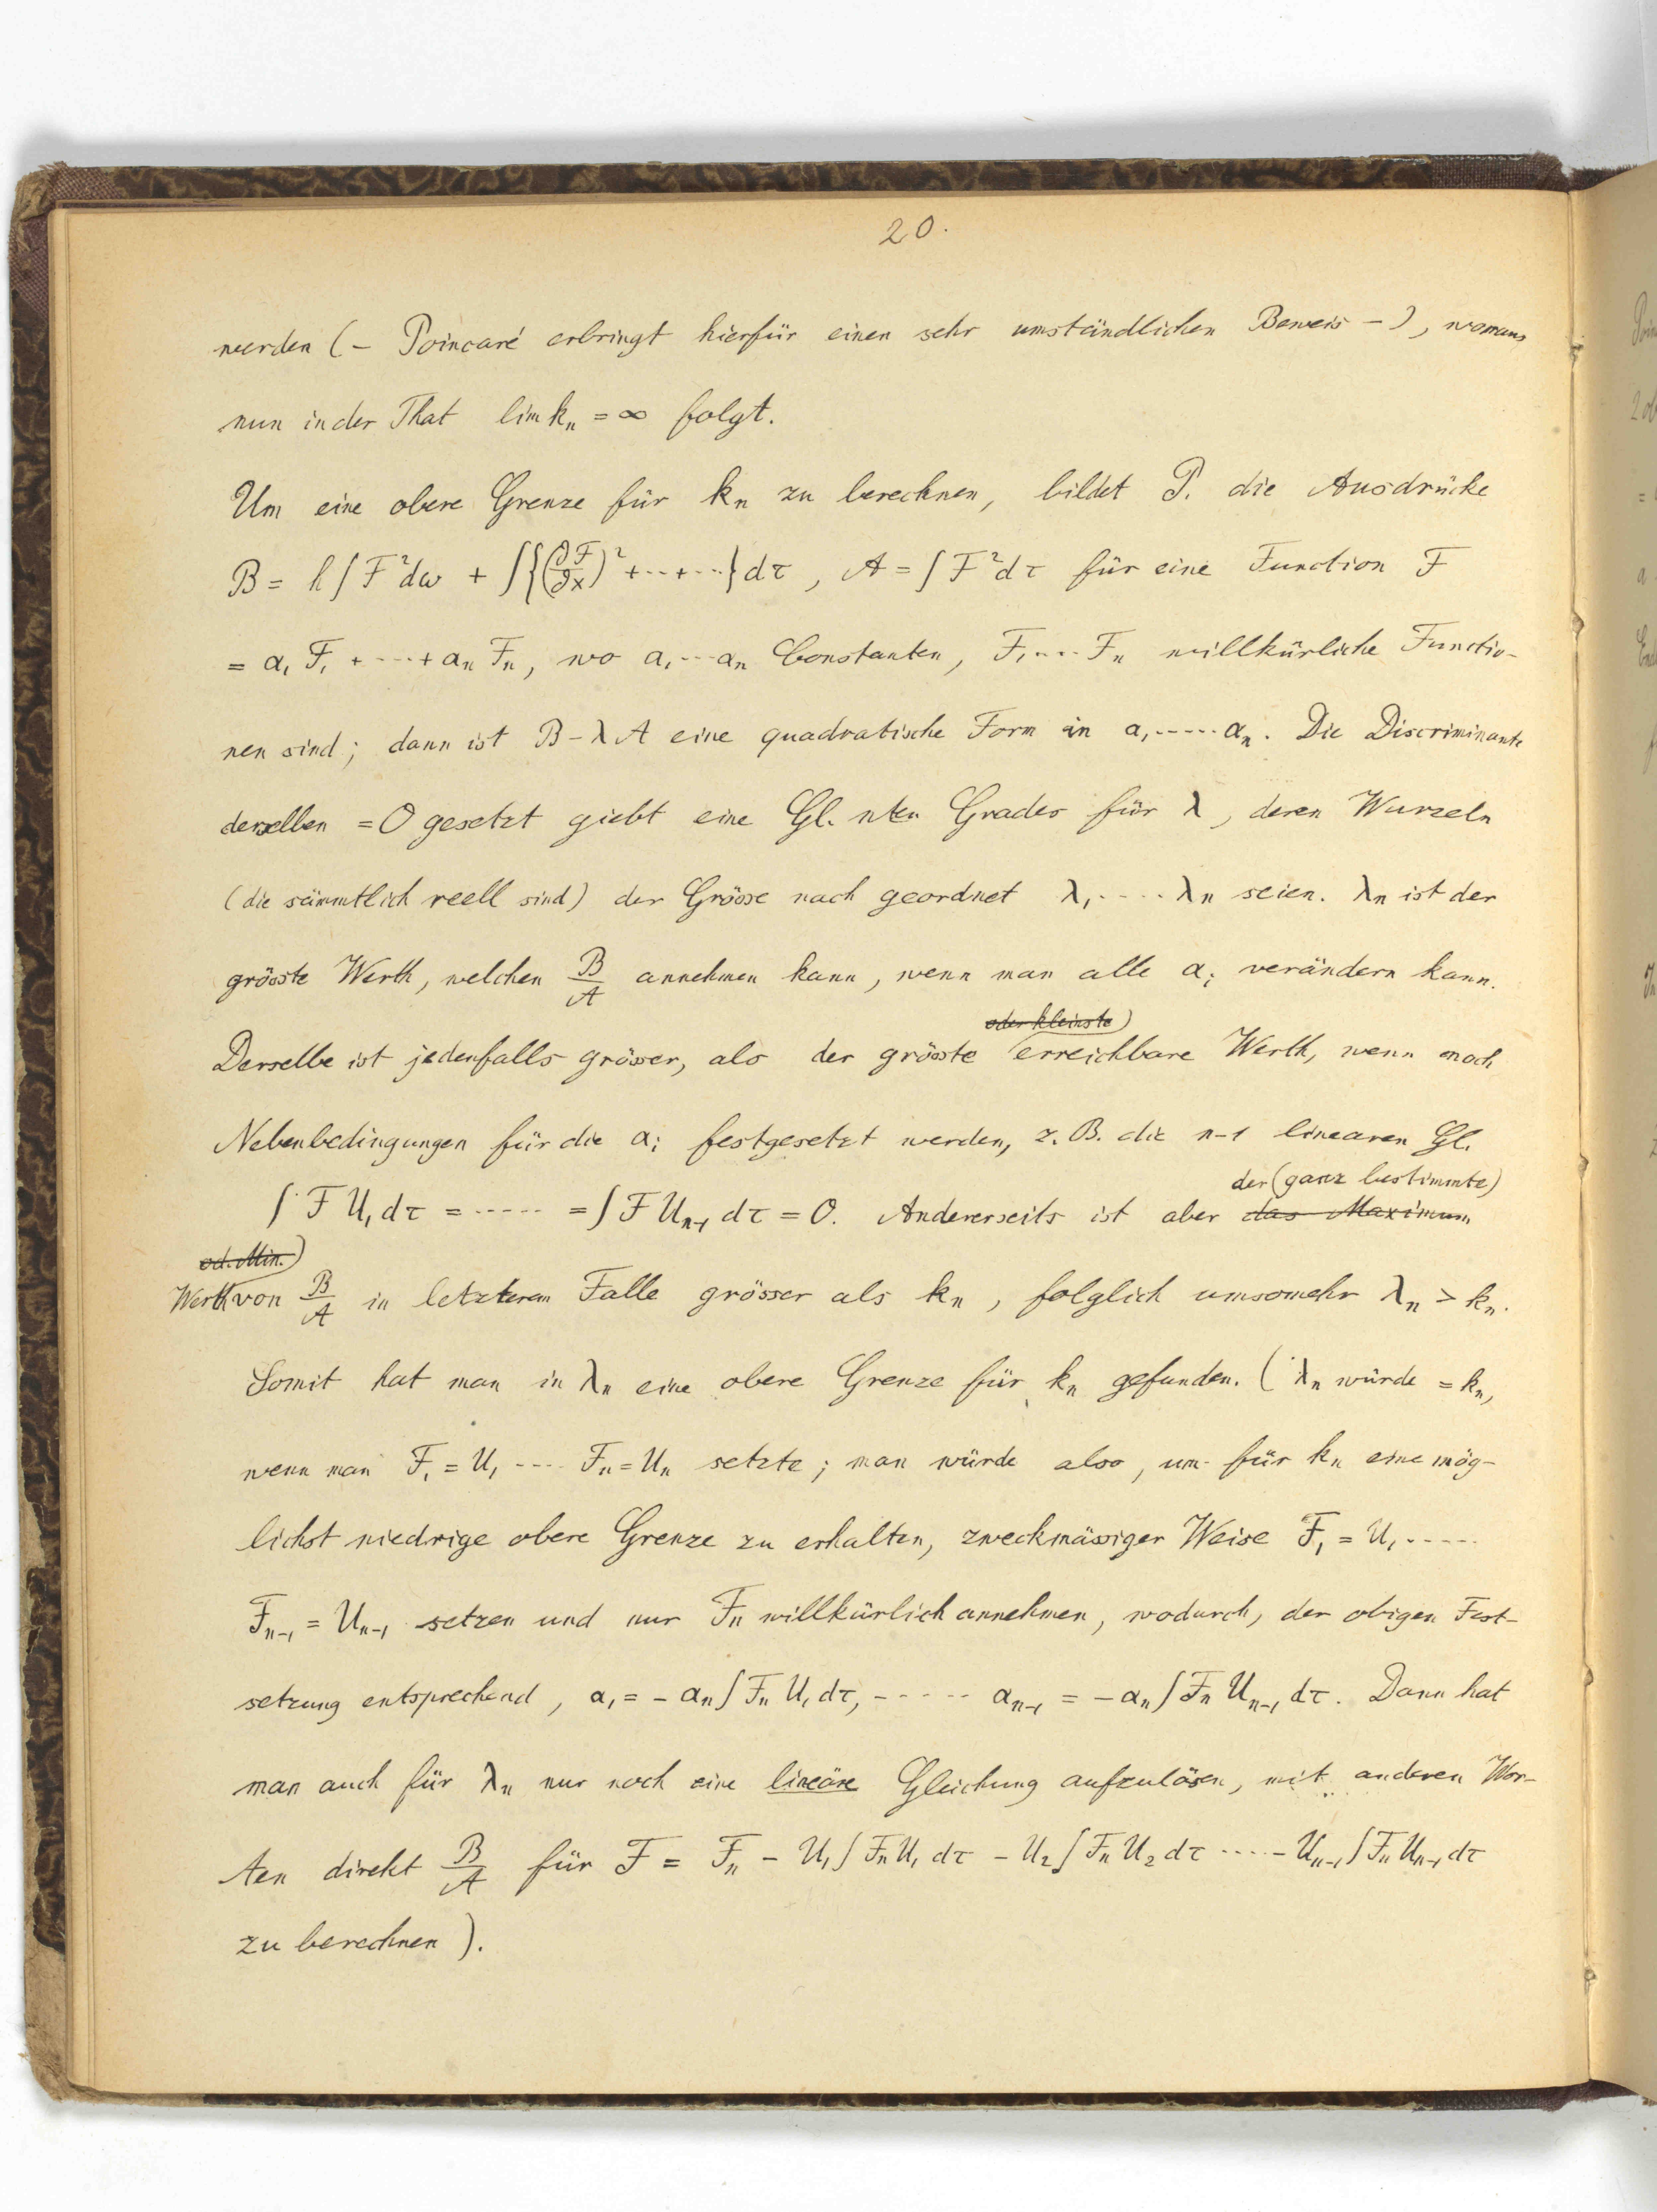 20.
werden (– Poincaré erbringt hierfür einen sehr umständlichen Beweis –), woraus
nun in der That lim kₙ = ∞ folgt.
Um eine obere Grenze für kₙ zu berechnen, bildet P. die Ausdrücke
B = h∫F²dω + ∫{(∂F/∂x)² +···+···}dτ, A = ∫F²dτ für eine Function F
= α₁F₁ + ····+ αₙFₙ, wo α₁···αₙ Constanten, F₁····Fₙ willkürliche Functio-
nen sind; dann ist B – λA eine quadratische Form in α₁·····αₙ. Die Discriminante
derselben = 0 gesetzt giebt eine Gl. nten Grades für λ, deren Wurzeln
(die sämmtlich reell sind) der Grösse nach geordnet λ₁·····λₙ seien. λₙ ist der
grösste Werth, welchen B/A annehmen kann, wenn man alle αᵢ verändern kann.
oder kleinste)
Derselbe ist jedenfalls grösser, als der grösste erreichbare Werth, wenn noch
Nebenbedingungen für die αᵢ festgesetzt werden, z. B. die n-1 linearen Gl.
der (ganz bestimmte)
∫FU₁dτ = ····· = ∫FUₙ₋₁dτ = 0. Andererseits ist aber das Maximum
od. Min.)
Werth von B/A in letzterem Falle grösser als kₙ, folglich umsomehr λₙ > kₙ.
Somit hat man in λₙ eine obere Grenze für kₙ gefunden. (λₙ würde = kₙ,
wenn man F₁ = U₁ ···· Fₙ = Uₙ setzte; man würde also, um für kₙ eine mög-
lichst niedrige obere Grenze zu erhalten, zweckmässiger Weise F₁ = U₁·····
Fₙ₋₁ = Uₙ₋₁ setzen und nur Fₙ willkürlich annehmen, wodurch, der obigen Fest-
setzung entsprechend, α₁ = – αₙ∫FₙU₁dτ, ····· αₙ₋₁ = – αₙ∫FₙUₙ₋₁dτ. Dann hat
man auch für λₙ nur noch eine lineäre Gleichung aufzulösen, mit anderen Wor-
ten direkt B/A für F = Fₙ – U₁∫FₙU₁dτ – U₂∫FₙU₂dτ ····– Uₙ₋₁∫FₙUₙ₋₁dτ
zu berechnen).